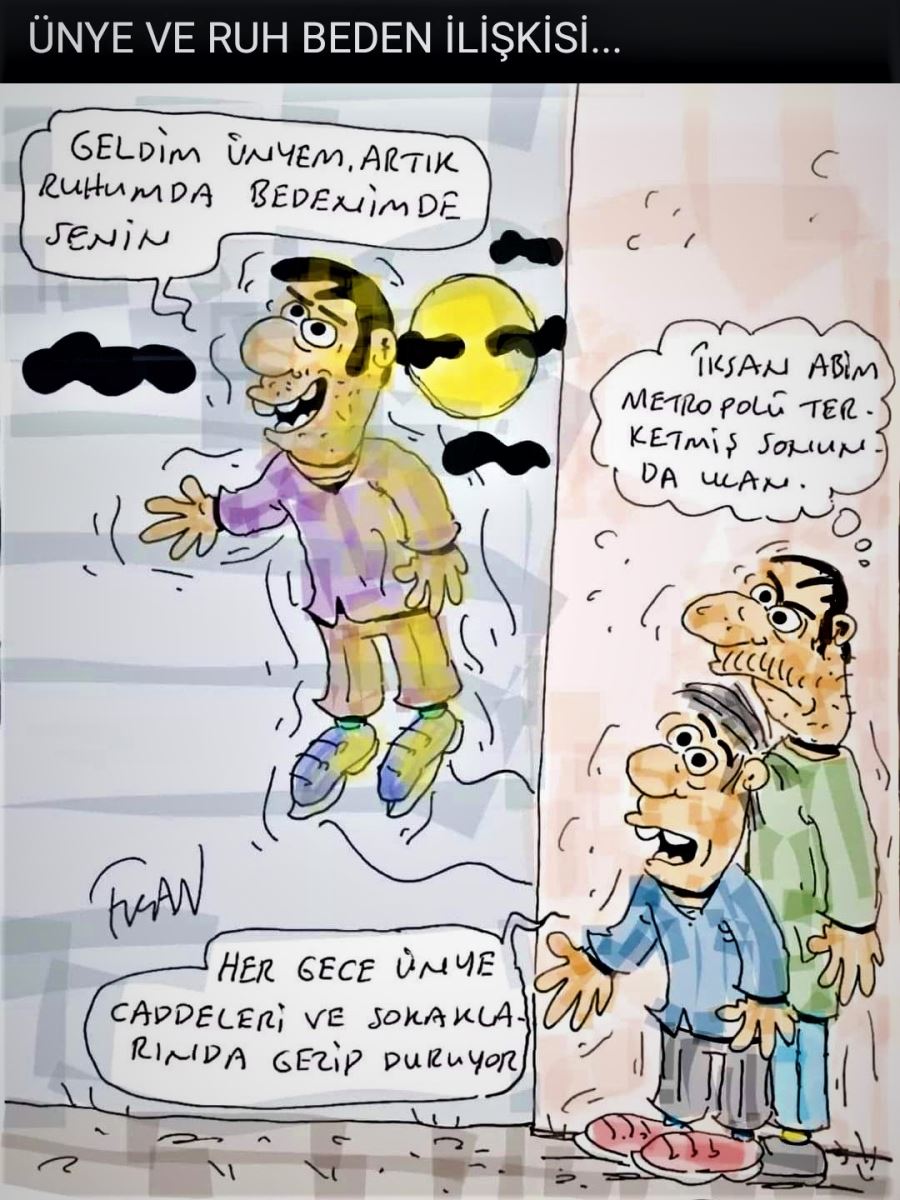 ÜNYE VE RUH BEDEN İLİŞKİSİ...
GELDİM ÜNYEM. ARTIK
RUHUMDA BEDENİMDE
SENİN
İKSAN ABİM
METROPOLÜ TER-
KETMİŞ SONUN-
DA ULAN.
HER GECE ÜNYE
CADDELERİ VE SOKAKLA-
RINDA GEZİP DURUYOR